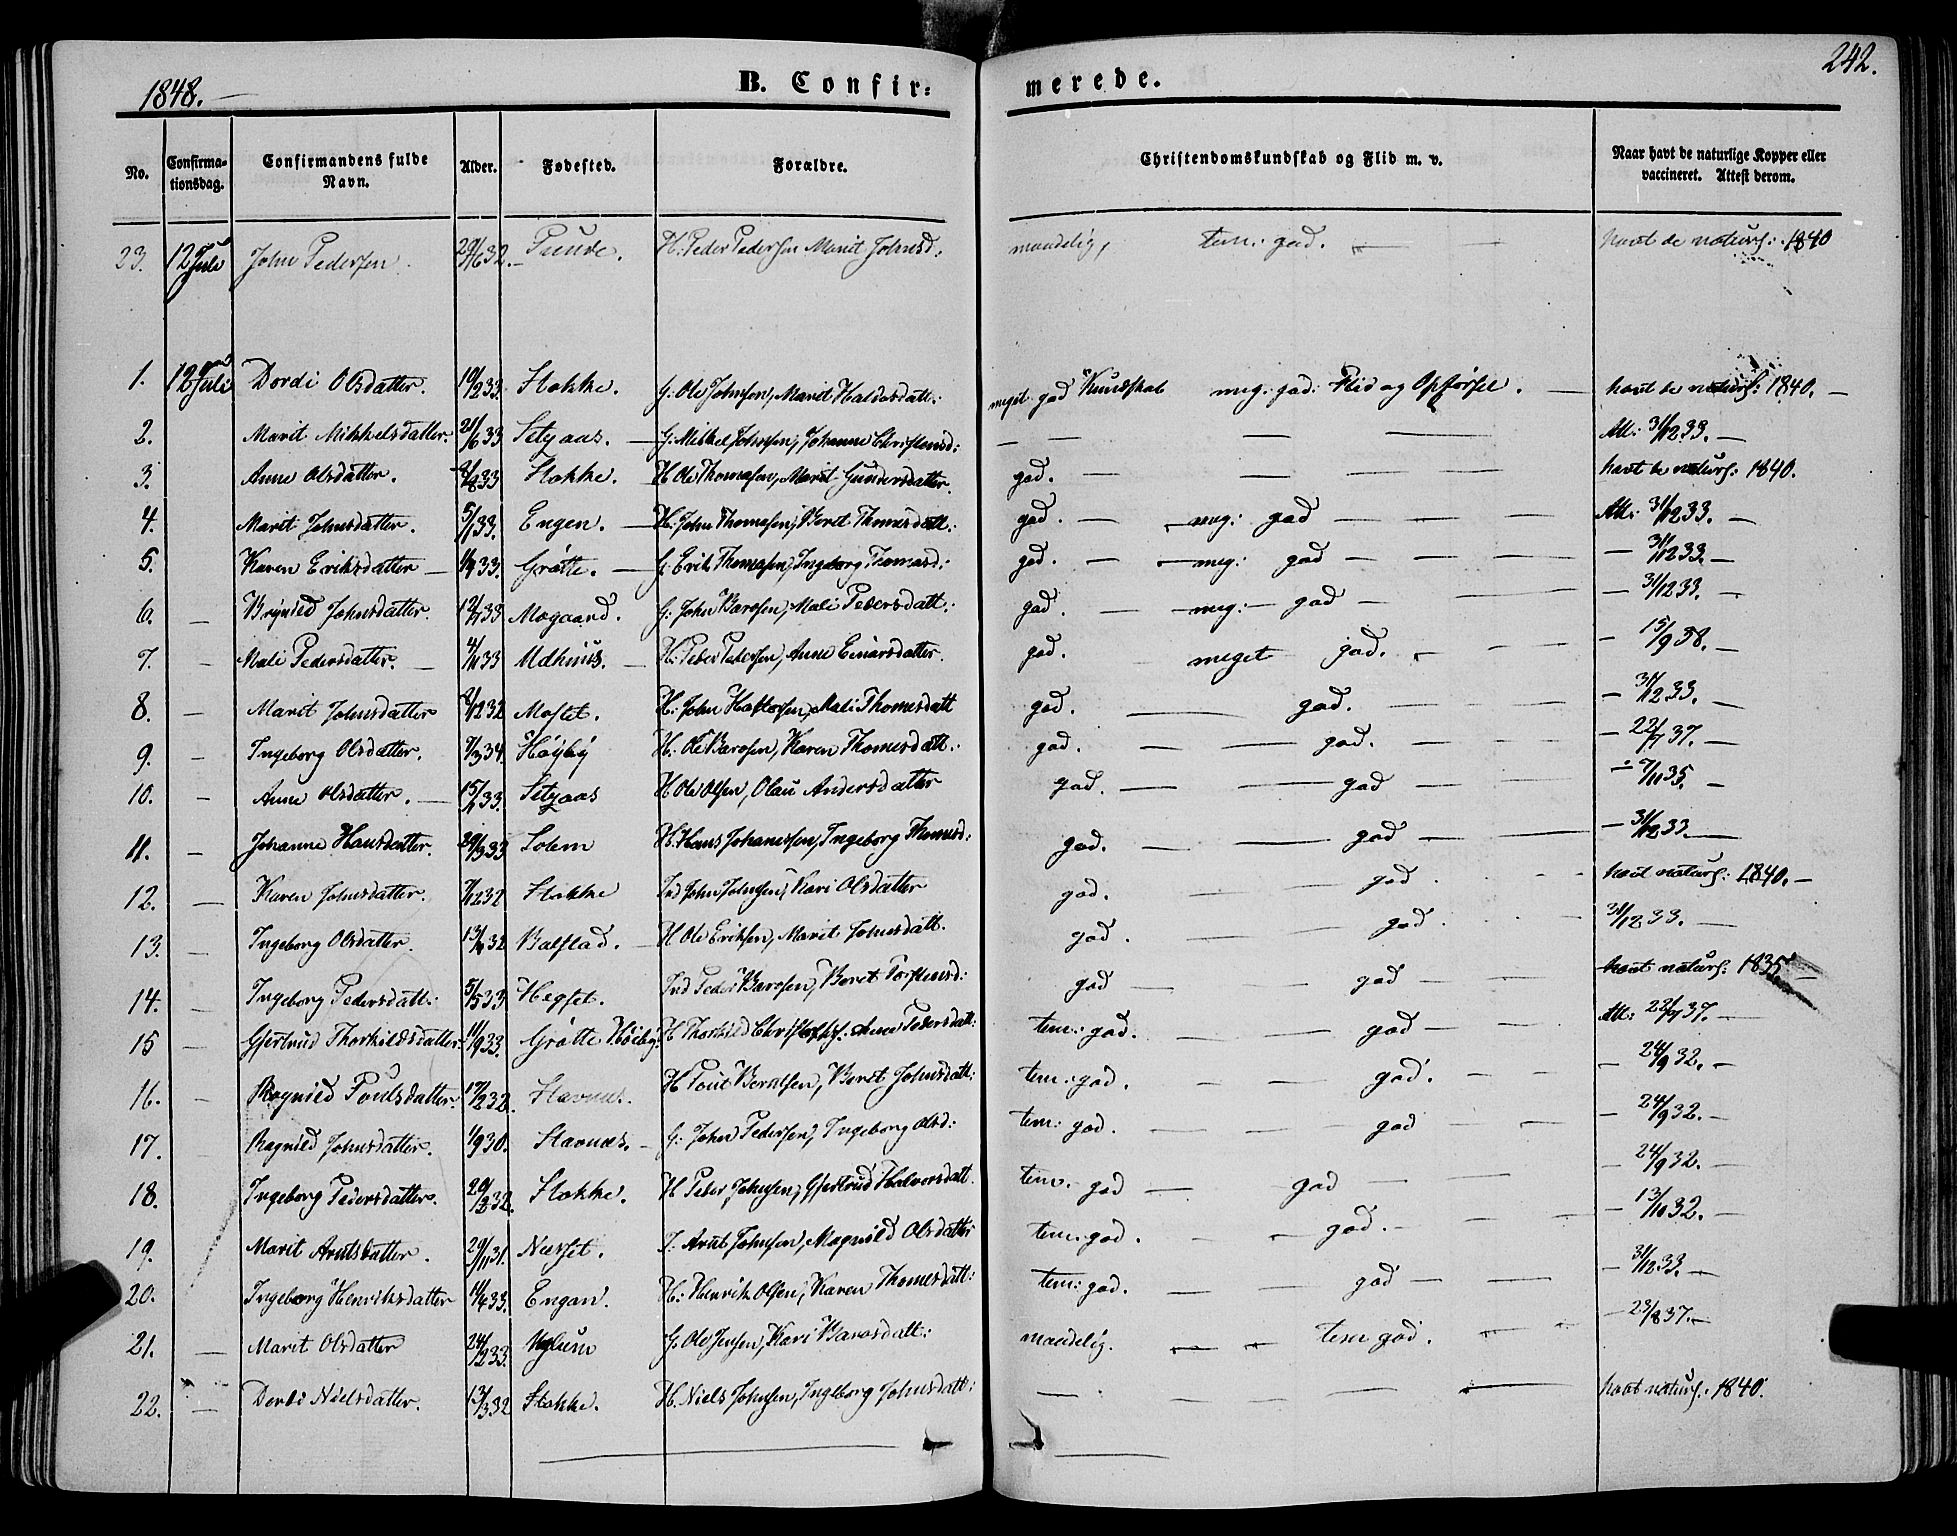 1848.
B. Confirmerede.
242.
No. Confirmationsdag. Confirmandens fulde Navn. Alder. Fødested. Forældre. Christendomskundskab og Flid m. v. Naar havt de naturlige Kopper eller vaccineret. Attest derom.
23. 12 Juli John Pedersen 29/6 32. H: Peder Pedersen Marit Johnsd: maadelig, tem: god. havt de naturl: 1840
1. 12 Juli Dordi Olsdatter. 19/2 33. Stokke. G: Ole Johnsen, Marit Haldosdatt: meget god Kundskab meg: god: Flid og Opførsel. havt de naturl: 1840. —
2. Marit Mikkelsdatter. 21/6 33 Setsaas. — G: Mikkel Johnsen, Johanne Christensd: — — — — Att: 31/12 33. —
3. Anne Olsdatter. 2/8 33 Stokke. H Ole Thomesen, Marit Gundersdatter. god. — — — havt de naturl: 1840.
4. Marit Johnsdatter. 5/1 33. Engen. — H. John Thomesen, Beret Thomesdatt: god. — meg: god — — Att: 31/12 33. —
5. Karen Eriksdatter — 33. Grøtte. — G: Erik Thomesen, Ingeborg Thomasd: god. — meg: god — — — 31/12 33. —
6. — Brynild Johnsdatter. 12/7 33 Mogaard. G: John Barosen, Mali Pedersdatt: god. — meg: — god — — 31/12 33. —
7. — Mali Pedersdatter. — 4/11 33 Udhuus. — H: Peder Pedersen, Anne Einarsdatter. god. meget god. — — 15/9 38. —
8. — Marit Johnsdatter 2/12 32 Moslet. H: John Haldosen, Mali Thomesdatt god. — god. — — 31/12 33. —
9. — Ingeborg Olsdatter. 7/3 34. Høyby H. Ole Barosen, Karen Thomesdatt: god. — — god. — — 22/7 37. —
10. — Anne Olsdatter. — 15/1 33. Setsaas H Ole Olsen, Olau Andersdatter god. — — god — 7/10 35. —
11. — Johanne Hansdatter. 29/3 33 Solem H. Hans Johannessen, Ingeborg Thomesd: god. — — god — — 31/12 33. —
12. — Karen Johnsdatter. 7/12 32 Stokke Ind John Johnsen, Kari Olsdatter god. god havt naturl: 1840. —
13. — Ingeborg Olsdatter. 13/2 32 Balstad. H Ole Eriksen, Marit Johnsdatt. god. — god. 31/12 33. —
14. — Ingeborg Pedersdatt: 5/5 33 Hegset. Ind Peder Barosen, Beret Torstensd: god — god — havt naturl: 1835 —
15 — Gjertrud Thorkildsdatter. 11/9 33. Grøtte Høiby H Thorkild Christophs: Anne Pedersdatt: tem: god. — god — Att: 22/7 37. —
16. — Ragnild Poulsdatter. 17/2 32. Stavnes. H Poul Berntsen, Beret Johnsdatt: tem: god. — — god. — — 24/9 32. —
17. Ragnild Johnsdatter. 1/9 30. Stavnes. — G: John Pedersen, Ingeborg Olsd: tem: god. — — god — — 24/9 32. —
18. Ingeborg Pedersdatter. 20/2 32. Stokke. H Peder Johnsen, Gjertrud Halvorsdatt. tem. god — god — — 24/9 32. —
19. Marit Arntsdatter. 29/11 31. Arnt Johnsen, Magnild Olsdatter tem: god. — god. — — 13/10 32. —
20. Ingeborg Henriksdatter 14/6 33. Engan. H: Henrik Olsen, Karen Thomesdatt: tem: god. — — god — — — 31/12 33. —
21. — Marit Olsdatter 24/2 33. G: Ole Jensen, Kari Barosdatt: maadelig. — — tem god. — — 23/8 37. —
22. — Dordi Nielsdatter. 13/3 32 Stokke. H. Niels Johnsen, Ingeborg Johnsdatt: — — — havt naturl: 1840.